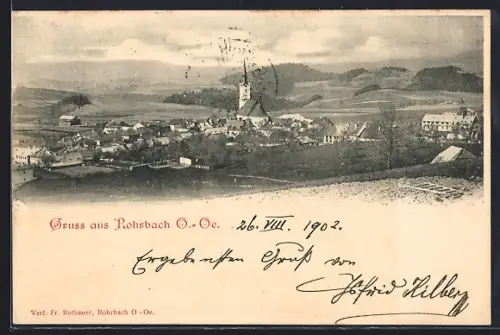 Gruss aus Rohrbach O.-Oe. 26. VIII. 1902.
Ergebensten Gruß von
Verl. Fr. Rothauer, Rohrbach O.-Oe.